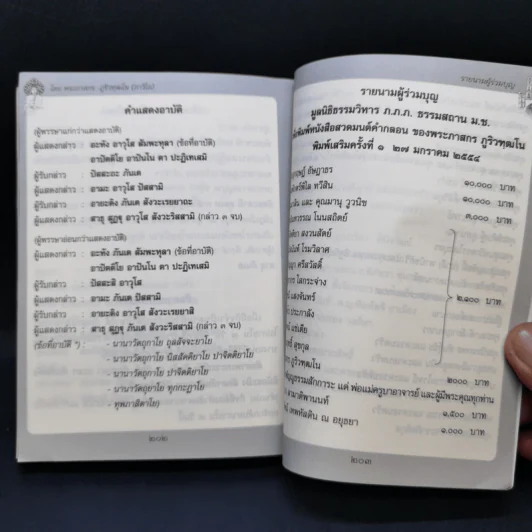 โดย พระภาสกร ภูริวฑฺฒโน (ภาวิไล)
คำแสดงอาบัติ
(ผู้พรรษาแก่กว่าแสดงอาบัติ)
ผู้แสดงกล่าว : อะหัง อาวุโส สัมพะหุลา (ชื่อที่อาบัติ)
อาปัตติโย อาปันโน ตา ปะฏิเทเสมิ
ผู้รับกล่าว : ปัสสะถะ ภันเต
ผู้แสดงกล่าว : อามะ อาวุโส ปัสสามิ
ผู้รับกล่าว : อายะติง ภันเต สังวะเรยยาถะ
ผู้แสดงกล่าว : สาธุ สุฏฐุ อาวุโส สังวะริสสามิ (กล่าว ๓ จบ)
(ผู้พรรษาอ่อนกว่าแสดงอาบัติ)
ผู้แสดงกล่าว : อะหัง ภันเต สัมพะหุลา (ชื่อที่อาบัติ)
อาปัตติโย อาปันโน ตา ปะฏิเทเสมิ
ผู้รับกล่าว : ปัสสะสิ อาวุโส
ผู้แสดงกล่าว : อามะ ภันเต ปัสสามิ
ผู้รับกล่าว : อายะติง อาวุโส สังวะเรยยาสิ
ผู้แสดงกล่าว : สาธุ สุฏฐุ ภันเต สังวะริสสามิ (กล่าว ๓ จบ)
(ชื่ออาบัติ ) : - นานาวัตถุกาโย ถุลลัจจะยาโย
- นานาวัตถุกาโย นิสสัคคิยาโย ปาจิตติยาโย
- นานาวัตถุกาโย ปาจิตติยาโย
- นานาวัตถุกาโย ทุกกะฏาโย
- ทุพภาสิตาโย)
๒๐๒
รายนามผู้ร่วมบุญ
รายนามผู้ร่วมบุญ
มูลนิธิธรรมวิหาร ภ.ภ.ภ. ธรรมสถาน ม.ช.
พิมพ์หนังสือสวดมนต์คำกลอน ของพระภาสกร ภูริวฑฺฒโน
พิมพ์เสริมครั้งที่ ๑ ๒๗ มกราคม ๒๕๕๔
อัษฎาธร ๑๐,๐๐๐ บาท
ทวีสิน ๑๐,๐๐๐ บาท
และ คุณมานู วูวนิช ๓,๐๐๐ บาท
โนนสถิตย์
สงวนสัตย์
โรมวิลาศ
ศรีสวัสดิ์
โสกระจ่าง
แสงจันทร์
๒,๑๐๐ บาท
ประกาลัง
สุขกุล
ภูริวฑฺฒโน ๒๐๐๐ บาท
แด่ พ่อแม่ครูบาอาจารย์ และผู้มีพระคุณทุกท่าน
๑,๕๐๐ บาท
เทพหัสดิน ณ อยุธยา ๑,๐๐๐ บาท
๒๐๓